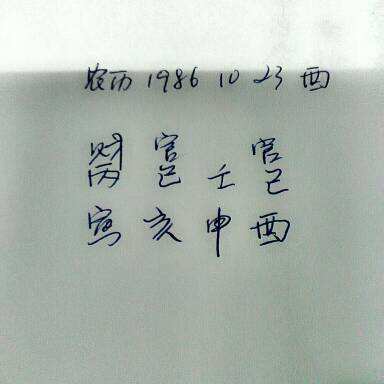 农历 1986 10 23 酉
财 官 官
丙 己 壬 己
寅 亥 申 酉